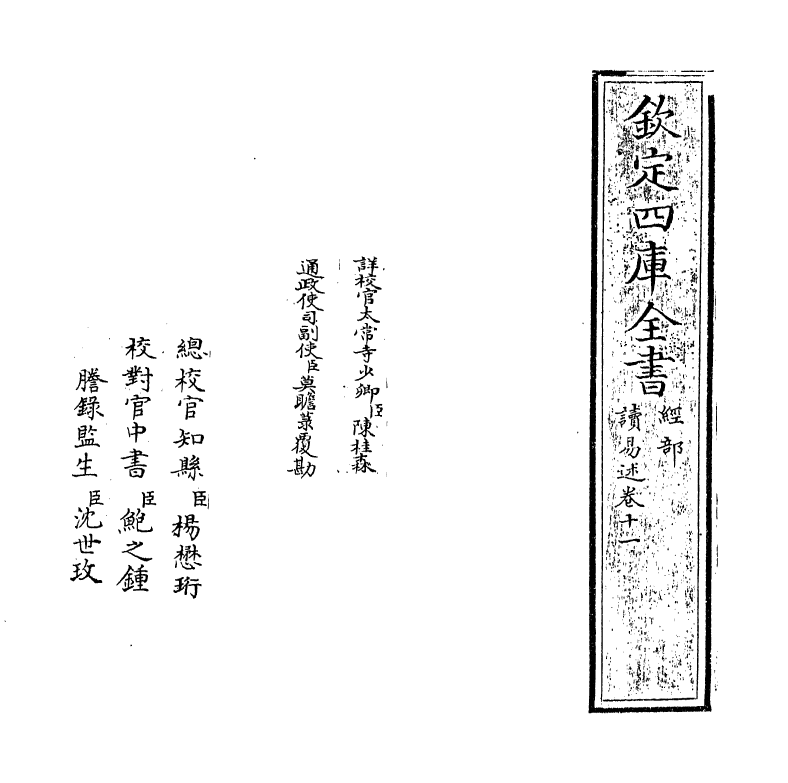 欽定四庫全書
經部
讀易述卷十一
詳校官太常寺少卿臣陳桂森
通政使司副使臣莫瞻菉覆勘
總校官知縣臣楊懋珩
校對官中書臣鮑之鍾
謄錄監生臣沈世玫